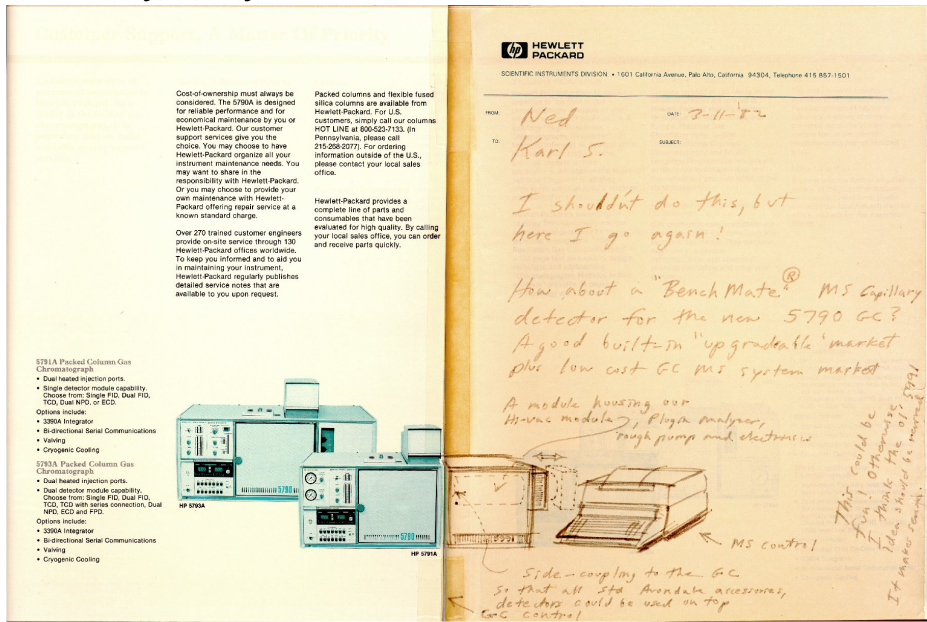 Cost-of-ownership must always be
considered. The 5790A is designed
for reliable performance and for
economical maintenance by you or
Hewlett-Packard. Our customer
support services give you the
choice. You may choose to have
Hewlett-Packard organize all your
instrument maintenance needs. You
may want to share in the
responsibility with Hewlett-Packard.
Or you may choose to provide your
own maintenance with Hewlett-
Packard offering repair service at a
known standard charge.
Over 270 trained customer engineers
provide on-site service through 130
Hewlett-Packard offices worldwide.
To keep you informed and to aid you
in maintaining your instrument,
Hewlett-Packard regularly publishes
detailed service notes that are
available to you upon request.
Packed columns and flexible fused
silica columns are available from
Hewlett-Packard. For U.S.
customers, simply call our columns
HOT LINE at 800-523-7133. (In
Pennsylvania, please call
215-268-2077). For ordering
information outside of the U.S.,
please contact your local sales
office.
Hewlett-Packard provides a
complete line of parts and
consumables that have been
evaluated for high quality. By calling
your local sales office, you can order
and receive parts quickly.
5791A Packed Column Gas
Chromatograph
• Dual heated injection ports.
• Single detector module capability.
Choose from: Single FID, Dual FID,
TCD, Dual NPD, or ECD.
Options include:
• 3390A Integrator
• Bi-directional Serial Communications
• Valving
• Cryogenic Cooling
5793A Packed Column Gas
Chromatograph
• Dual heated injection ports.
• Dual detector module capability.
Choose from: Single FID, Dual FID,
TCD, TCD with series connection, Dual
NPD, ECD and FPD.
Options include:
• 3390A Integrator
• Valving
• Cryogenic Cooling
5790
HP 5793A
5790
HP 5791A
hp HEWLETT
PACKARD
SCIENTIFIC INSTRUMENTS DIVISION • 1601 California Avenue, Palo Alto, California 94304, Telephone 415 857-1501
FROM: Ned DATE: 3-11-'82
TO: Karl S. SUBJECT:
I shouldn't do this, but
here I go again!
How about a "BenchMate"® MS Capillary
detector for the new 5790 GC?
A good built-in "upgradeable" market
plus low cost GC MS system market
A module housing our
Hi-vac module, Plugin analyzer,
rough pump and electronics
MS control
Side-coupling to the GC
so that all std Avondale accessories,
detectors could be used on top
GC control
This could be
fun! Otherwise,
I think the ol' 5991
idea should be married
It makes sense